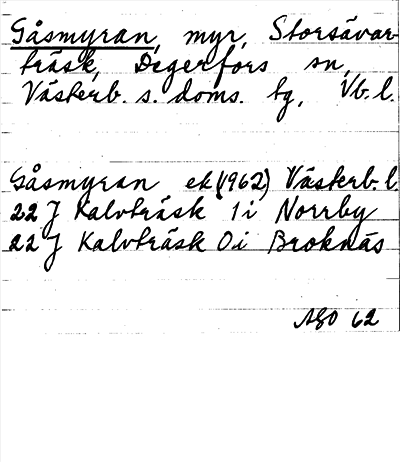 Gåsmyran, myr, Storsävar-
träsk, Degerfors sn,
Västerb. s. doms. tg, Vb. l.
Gåsmyran ek (1962) Västerb. l.
22 J Kalvträsk 1 i Norrby
22 J Kalvträsk 0 i Broknäs
62